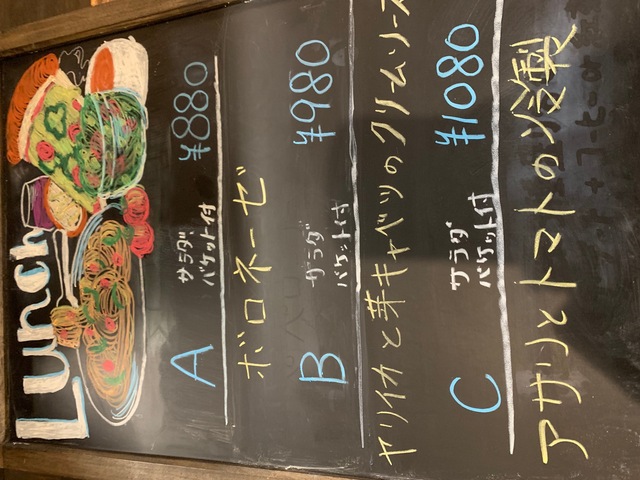 Lunch
A サラダ バケット付 ¥880
ボロネーゼ
B サラダ バケット付 ¥980
ヤリイカと芽キャベツのクリームソース
C サラダ バケット付 ¥1080
アサリとトマトの冷製